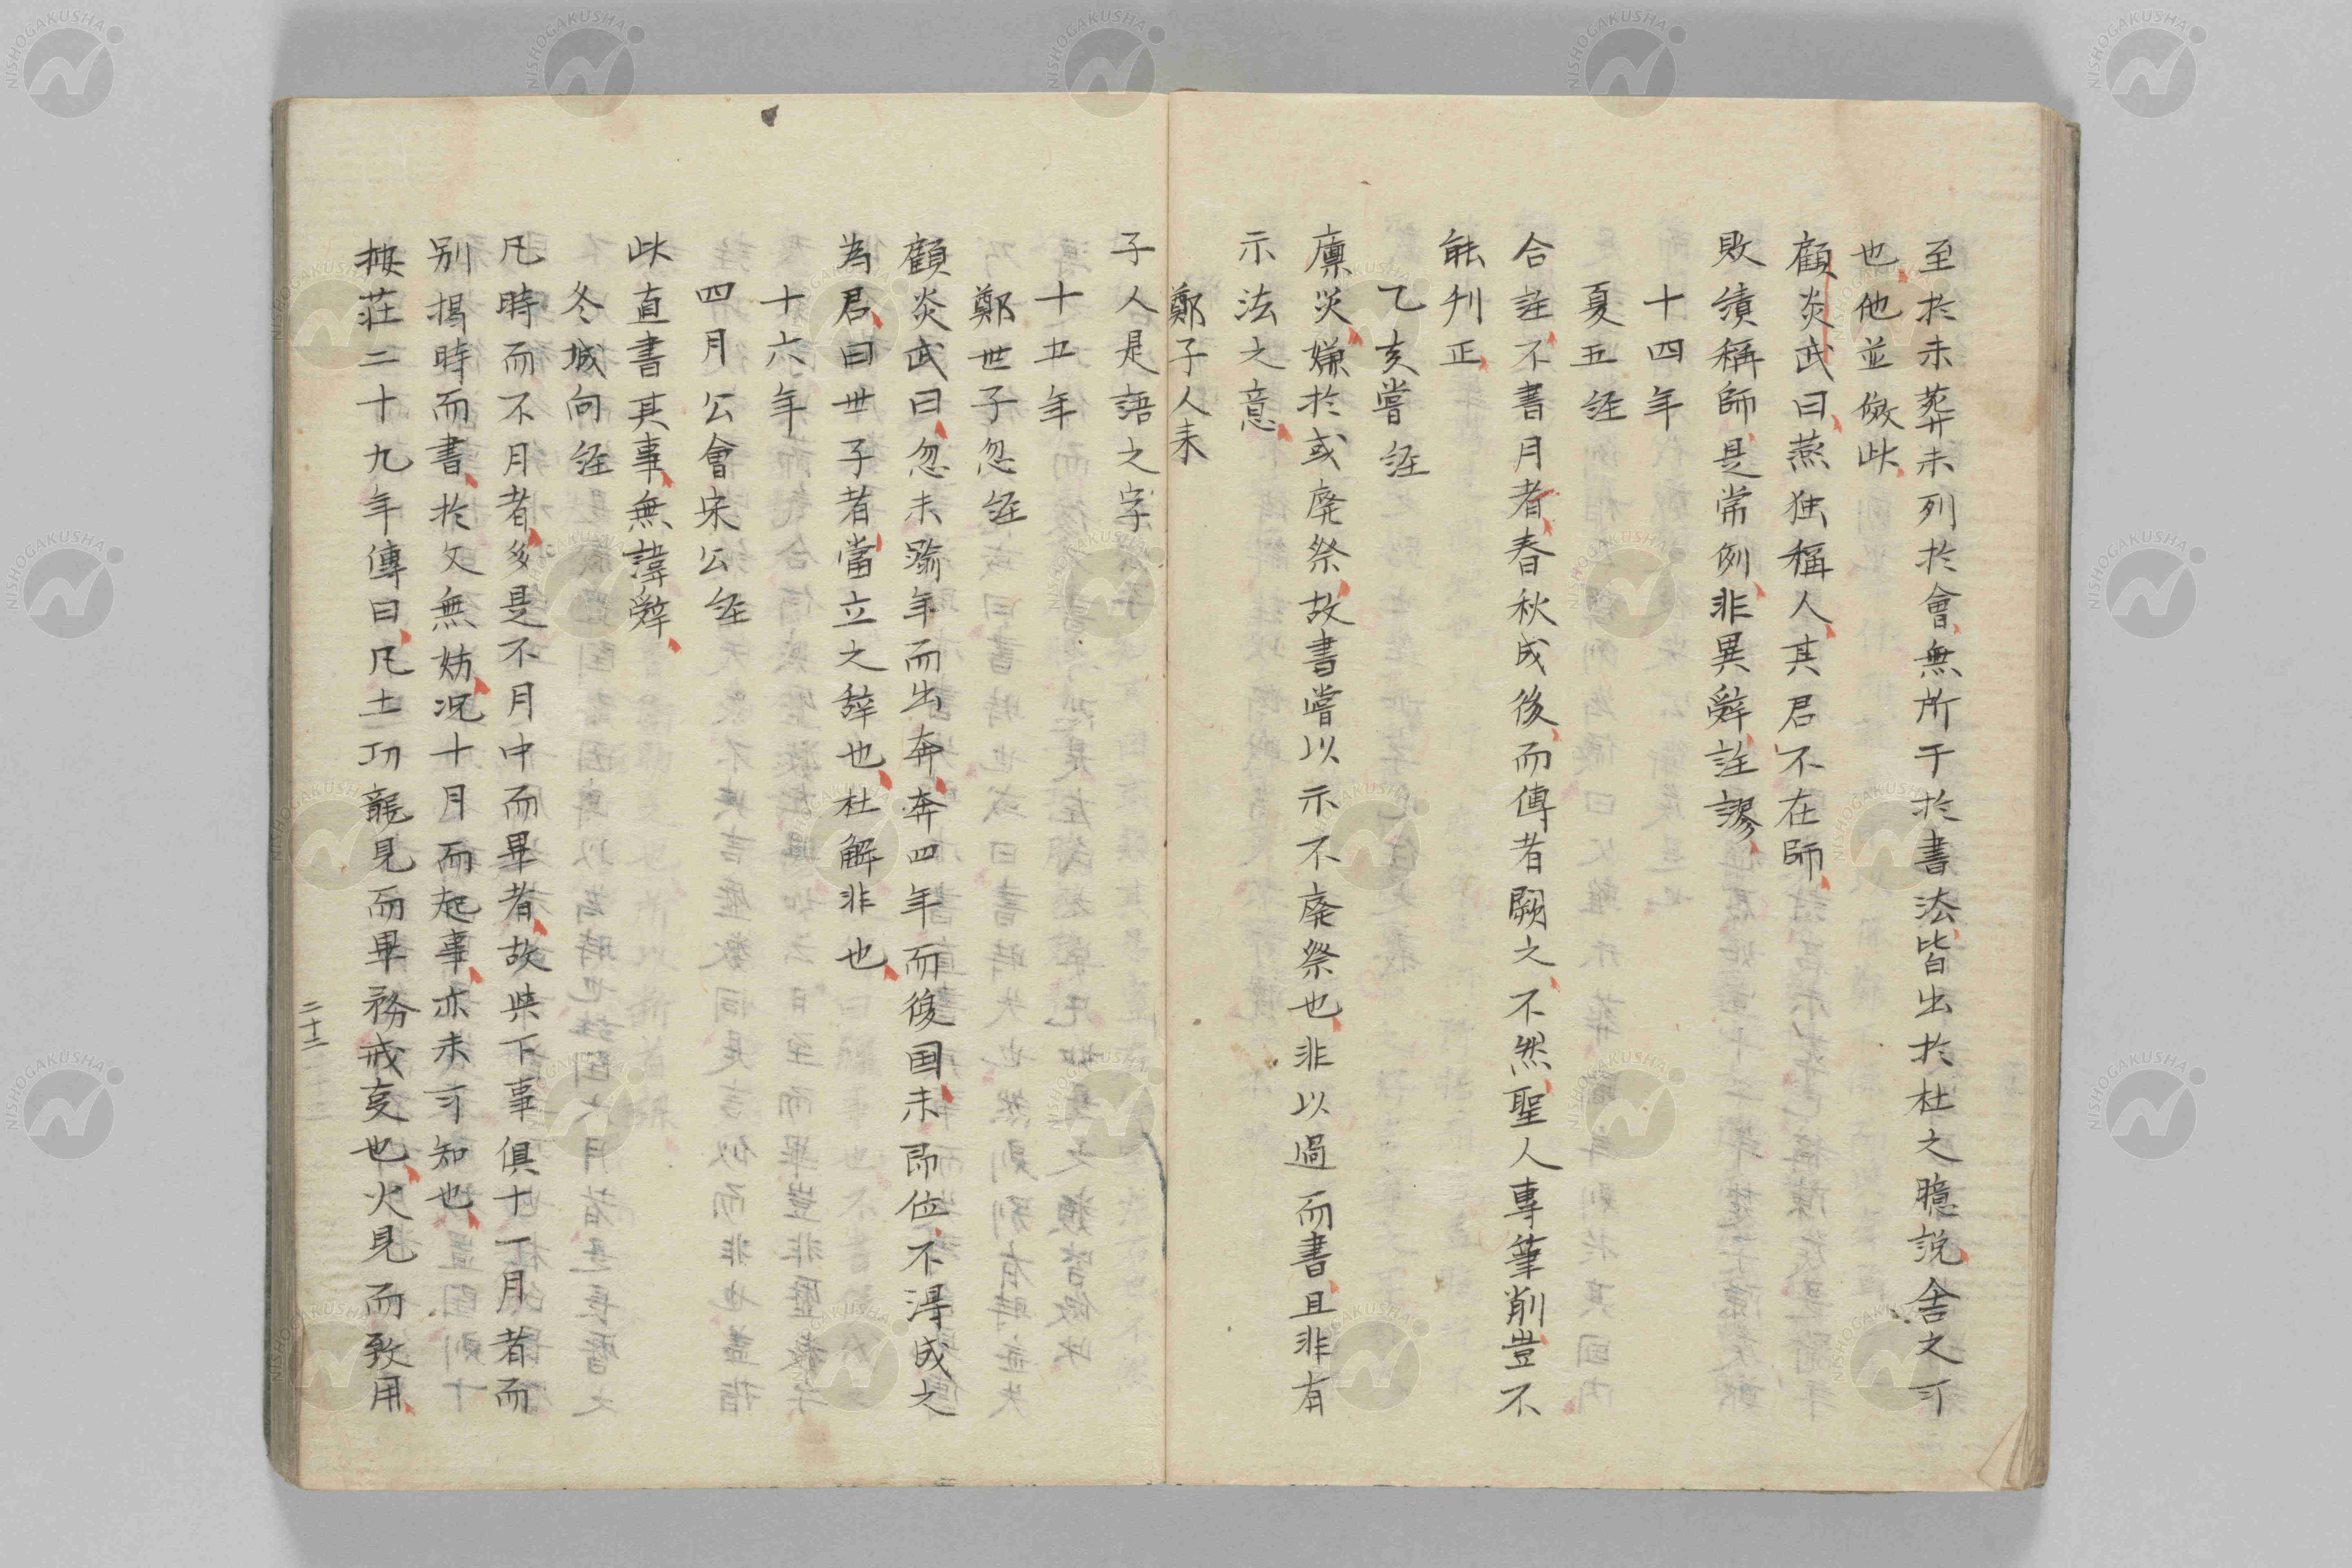 至於未葬未列於會無所干於書法皆出於杜之臆説舍之可
也他並倣此
顧炎武曰燕独稱人其君不在師
敗績稱師是常例非異辭註謬
十四年
夏五経
合註不書月者春秋成後而傳者闕之不然聖人專筆削豈不
能刊正
乙亥嘗経
廩災嫌於或廃祭故書嘗以示不廃祭也非以過而書且非有
示法之意
鄭子人来
子人是語之字
十五年
鄭世子忽経
顧炎武曰忽未踰年而出奔奔四年而復国未即位不得成之
為君曰世子者當立之辞也杜解非也
十六年
四月公會宋公経
此直書其事無諱辭
冬城向経
凡時而不月者多是不月中而畢者故與下事俱十一月者而
別掲時而書於文無妨况十月而起事亦未可知也
按荘二十九年傳曰凡土功龍見而畢務戒事也火見而致用
二十二
NISHOGAKUSHA